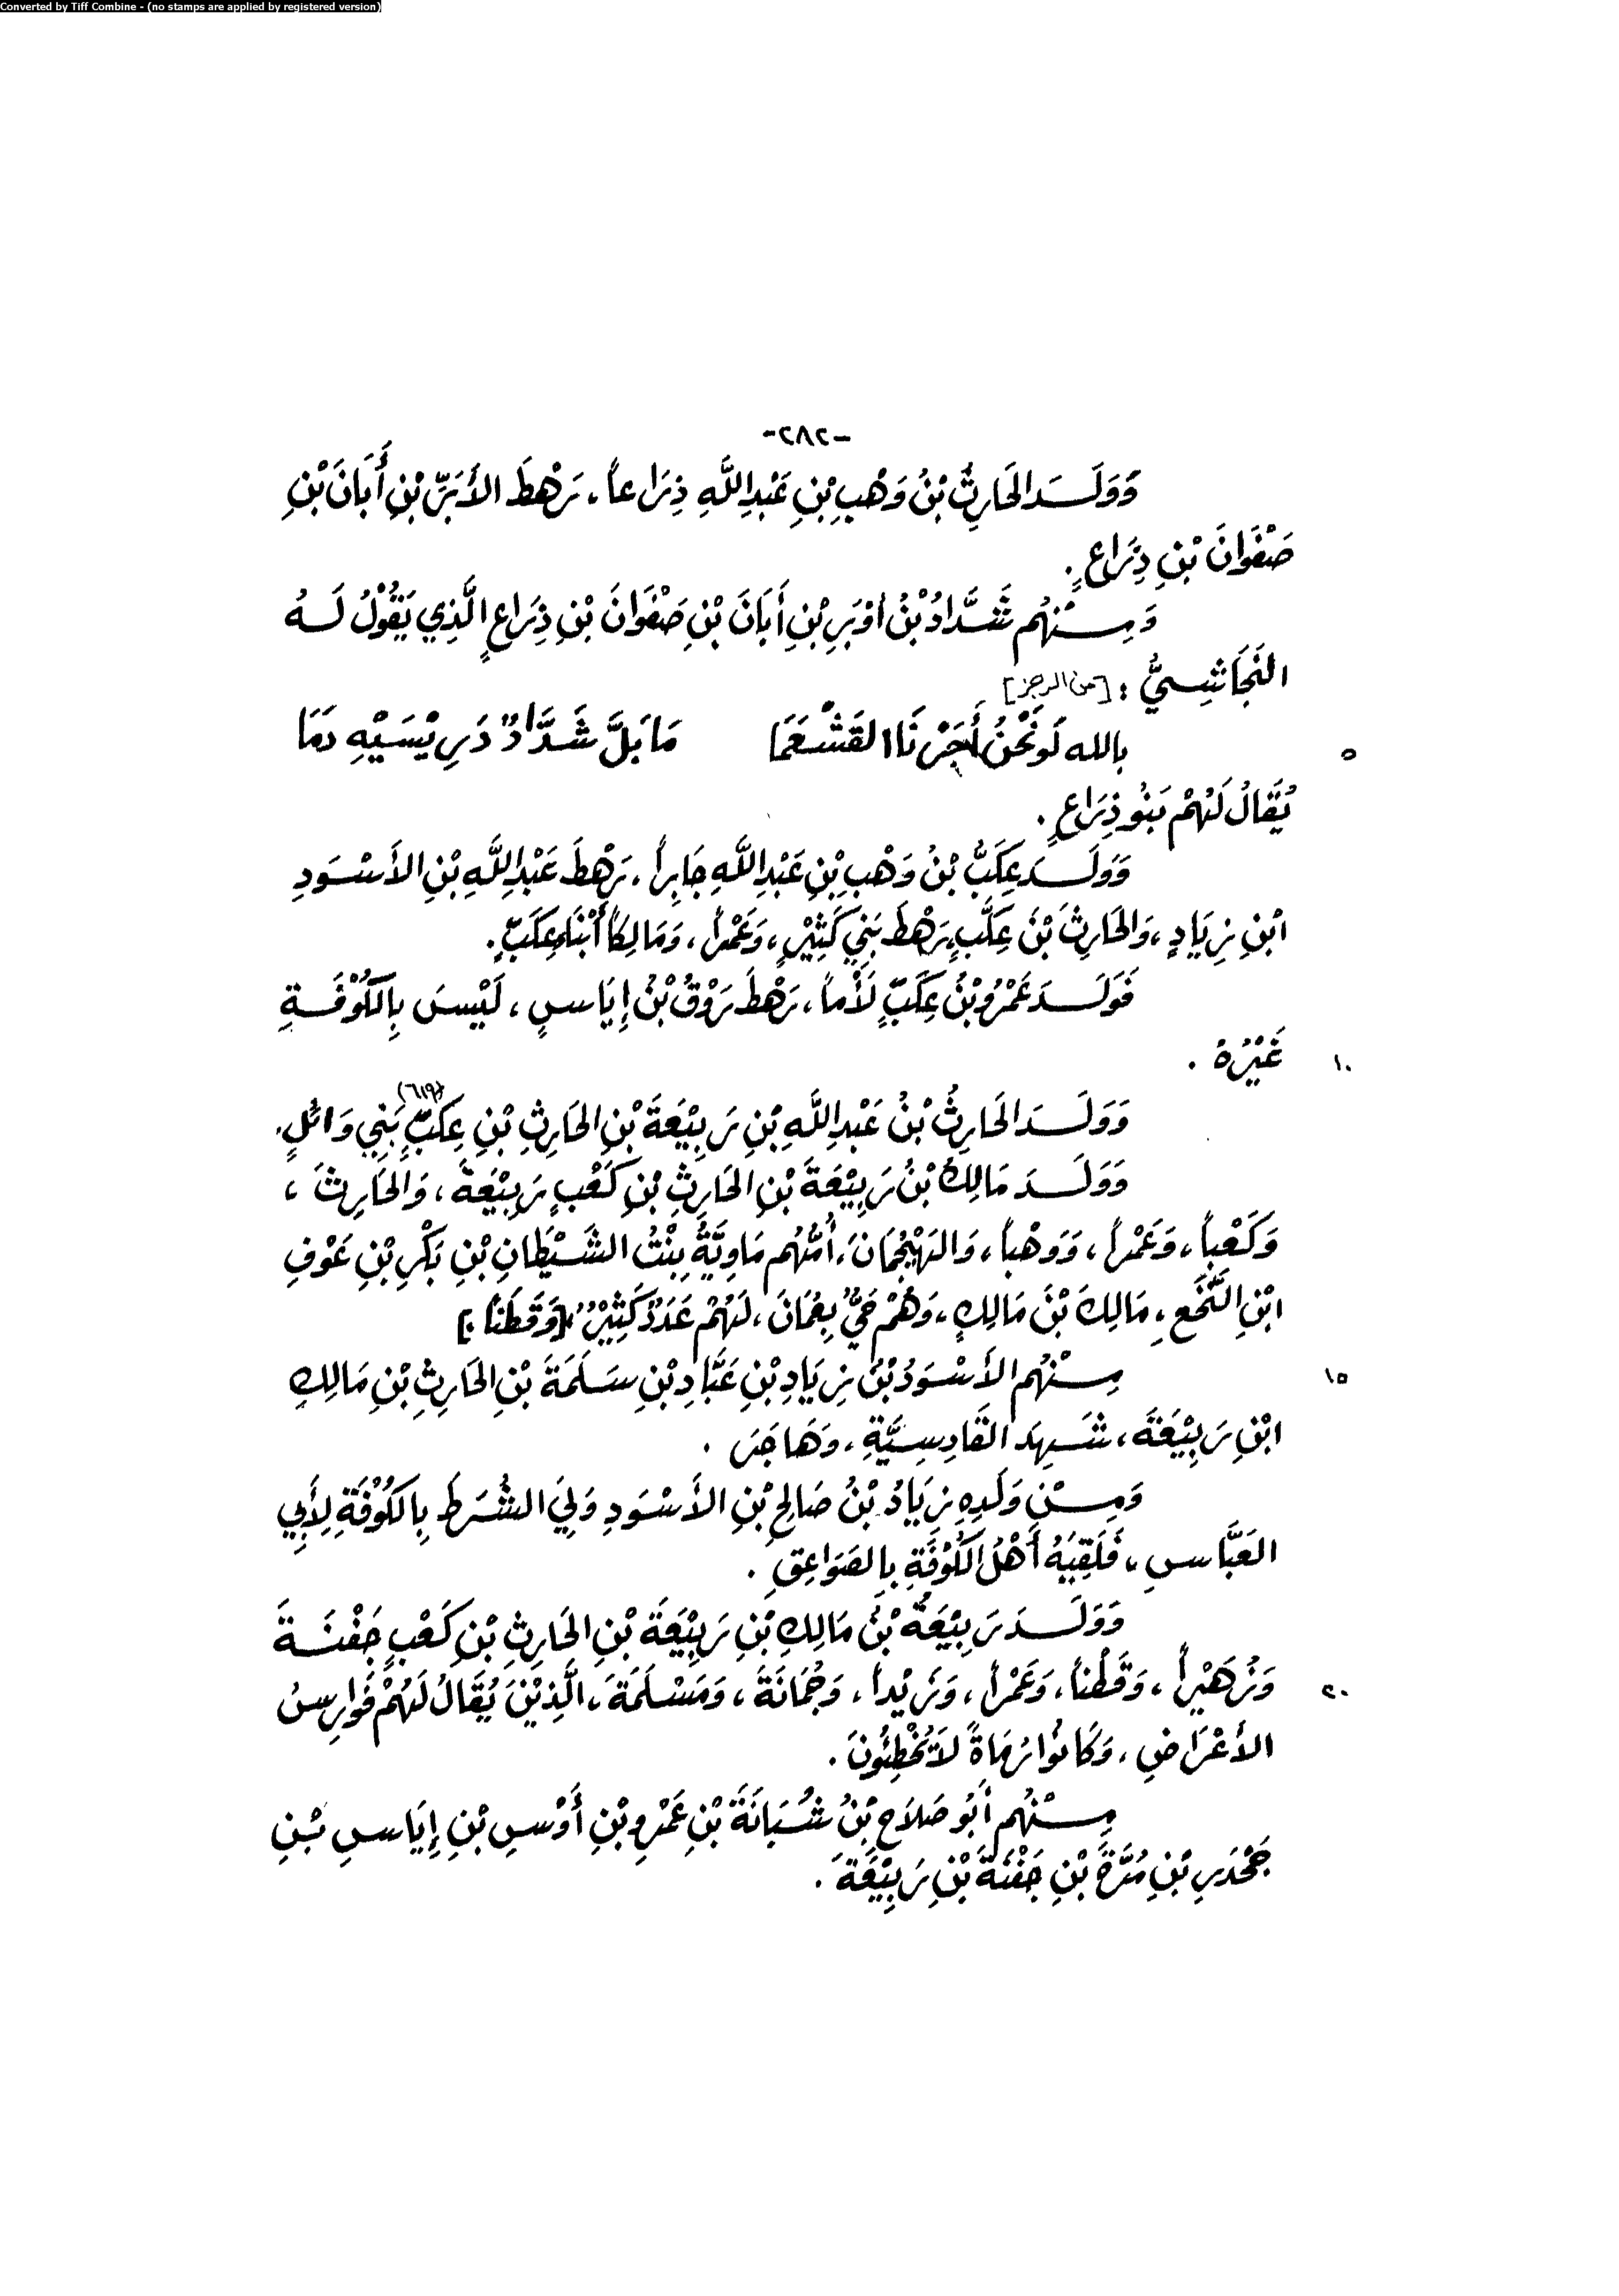 Converted by Tiff Combine - (no stamps are applied by registered version)
-٢٨٢-
وَوَلَدَ الحَارِثُ بْنُ وَهْبِ بْنِ عَبْدِ اللَّهِ ذِرَاعاً، رَهْطَ الأَبَرِّ بْنِ أَبَانَ بْنِ
صَفْوَانَ بْنِ ذِرَاعٍ.
وَمِنْهُم شَدَّادُ بْنُ أوْبَرِ بْنِ أَبَانَ بْنِ صَفْوَانَ بْنِ ذِرَاعٍ الَّذِي يَقُوْلُ لَهُ
النَّجَاشِيُّ : [من الرجز]
بالله لَو نَحْنُ أَجَرْنَا القَشْعَمَا مَا بَلَّ شَدَّادٌ دَرِيْسَيْهِ دَمَا
٥
يُقَالُ لَهُمْ بَنُو ذِرَاعٍ.
وَوَلَدَ عِكَبُّ بْنُ وَهْبِ بْنِ عَبْدِ اللَّهِ جَابِراً، رَهْطَ عَبْدِ اللَّهِ بْنِ الأَسْوَدِ
ابْنِ زِيَادٍ، وَالحَارِثَ بْنَ عِكَبٍّ رَهْطَ بَنِي كَثِيْرٍ، وَعَمْراً، وَمَالِكاً أَبْنَاءَ عِكَبٍّ.
فَوَلَدَ عَمْرُو بْنُ عِكَبٍّ لَأْماً، رَهْطَ رَوْقُ بْنُ إِيَاسٍ، لَيْسَ بِالكُوْفَةِ
غَيْرُهُ.
١٠
وَوَلَدَ الحَارِثُ بْنُ عَبْدِ اللَّهِ بْنِ رَبِيْعَةَ بْنِ الحَارِثِ بْنِ عِكَبٍّ (٦١٩) بَنِي وَائِلٍ.
وَوَلَدَ مَالِكُ بْنُ رَبِيْعَةَ بْنِ الحَارِثِ بْنِ كَعْبٍ رَبِيْعَةَ، وَالحَارِثَ،
وَكَعْباً، وَعَمْراً، وَوَهْباً، وَالهَيْجُمَانَ، أُمُّهُم مَاوِيَّةُ بِنْتُ الشَّيْطَانِ بْنِ بَكْرِ بْنِ عَوْفِ
ابْنِ النَّخَعِ، مَالِكَ بْنَ مَالِكٍ، وَهُمْ حَيٌّ بِعُمَانَ، لَهُمْ عَدَدٌ كَثِيْرٌ، [وَقَطَناً.]
مِنْهُم الأَسْوَدُ بْنُ زِيَادِ بْنِ عَبَّادِ بْنِ سَلَمَةَ بْنِ الحَارِثِ بْنِ مَالِكِ
١٥
ابْنِ رَبِيْعَةَ، شَهِدَ القَادِسِيَّةِ، وَهَاجَرَ.
وَمِنْ وَلَدِهِ زِيَادُ بْنُ صَالِحِ بْنِ الأَسْوَدِ وَلِيَ الشُّرَطَ بِالكُوْفَةِ لِأَبِي
العَبَّاسِ، فَلَقِيَهُ أَهْلُ الكُوْفَةِ بِالصَوَاعِقِ.
وَوَلَدَ رَبِيْعَةُ بْنُ مَالِكِ بْنِ رَبِيْعَةَ بْنِ الحَارِثِ بْنِ كَعْبٍ جَفْنَةَ
وَزُهَيْراً، وَقَطْناً، وَعَمْراً، وَزَيْداً، وَجُمَانَةَ، وَمَسْلَمَةَ، الَّذِيْنَ يُقَالُ لَهُمْ فَوَارِسُ
٢٠
الأَعْرَاضِ، وَكَانُوا رُمَاةً لاَ يُخْطِئُونَ.
مِنْهُم أَبُو صَلاَحِ بْنُ شُبَانَةَ بْنِ عَمْرِو بْنِ أَوْسِ بْنِ إِيَاسِ بْنِ
جَحْدَرِ بْنِ مُرَّةَ بْنِ جَفْنَةَ بْنِ رَبِيْعَةَ.